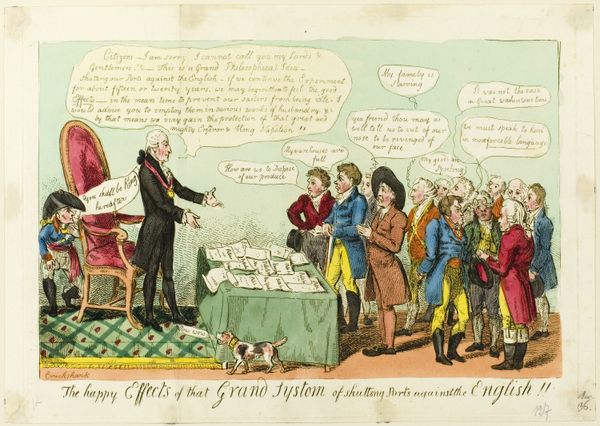 Citizens – I am sorry I cannot call you my Lords &
Gentlemen!! – This is a Grand Philosophical Idea –
Shutting our Ports against the English – if we continue the Experiment
for about fifteen or twenty years, we may begin then to feel the good
Effects – in the mean time to prevent our Sailors from being idle – I
would advise you to employ them in various works of husbandry &c
by that means we may gain the protection of that great and
mighty Emperor & King Napoleon!!
You shall be King
hereafter
How are we to Dispose
of our produce
My warehouses are
full
yea friend thou may as
well tell us to cut of our
nose to be revenged of
our face
My famely is
Starving
My goods are
Spoiling
It was not the case
in Great washintons time
We must speak to him
in more forceable language
Cruickshank
The happy Effects of that Grand System of shutting Ports against the English!!